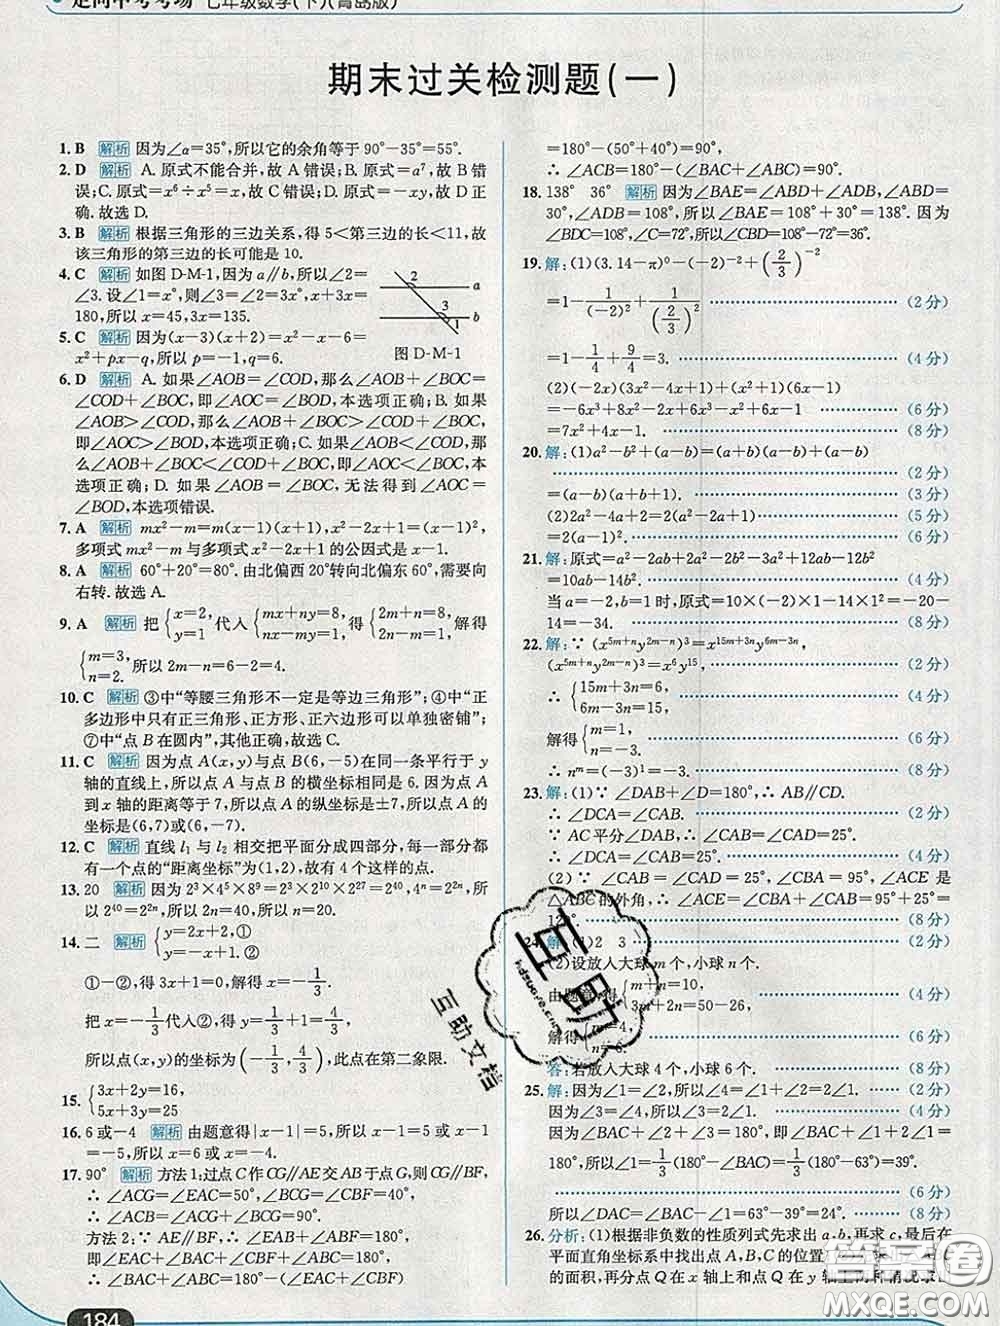 走向中考考场 七年级数学(下)(青岛版)
期末过关检测题(一)
1. B 解析 因为∠a=35°,所以它的余角等于90°-35°=55°.
2. D 解析 A. 原式不能合并,故 A 错误;B. 原式=a⁷,故 B 错误;C. 原式=x⁶÷x⁵=x,故 C 错误;D. 原式=-xy,故 D 正确. 故选 D.
3. B 解析 根据三角形的三边关系,得 5<第三边的长<11,故
该三角形的第三边的长可能是 10.
4. C 解析 如图 D-M-1,因为 a∥b,所以∠2=
∠3. 设∠1=x°,则∠2=∠3=3x°,x+3x=
180,所以 x=45,3x=135.
2 a 3 b 1
图 D-M-1
5. C 解析 因为(x-3)(x+2)=x²-x-6=
x²+px-q,所以 p=-1,q=6.
6. D 解析 A. 如果∠AOB=∠COD,那么∠AOB+∠BOC=
∠COD+∠BOC,即∠AOC=∠BOD,本选项正确;B. 如果
∠AOB>∠COD,那么∠AOB+∠BOC>∠COD+∠BOC,
即∠AOC>∠BOD,本选项正确;C. 如果∠AOB<∠COD,那
么∠AOB+∠BOC<∠COD+∠BOC,即∠AOC<∠BOD,本
选项正确;D. 如果∠AOB=∠BOC,无法得到∠AOC=
∠BOD,本选项错误.
7. A 解析 mx²-m=m(x-1)(x+1),x²-2x+1=(x-1)²,
多项式 mx²-m 与多项式 x²-2x+1 的公因式是 x-1.
8. A 解析 60°+20°=80°. 由北偏西 20°转向北偏东 60°,需要向
右转. 故选 A.
9. A 解析 把{x=2, y=1 代入{mx+ny=8, nx-my=1,得{2m+n=8, 2n-m=1,解得
{m=3, n=2. 所以 2m-n=6-2=4.
10. C 解析 ③中“等腰三角形不一定是等边三角形”;④中“正
多边形中只有正三角形、正方形、正六边形可以单独密铺”;
⑦中“点 B 在圆内”,其他正确. 故选 C.
11. C 解析 因为点 A(x,y)与点 B(6,-5)在同一条平行于 y
轴的直线上,所以点 A 与点 B 的横坐标相同是 6. 因为点 A
到 x 轴的距离等于 7,所以点 A 的纵坐标是±7,所以点 A 的
坐标是(6,7)或(6,-7).
12. C 解析 直线 l₁ 与 l₂ 相交把平面分成四部分,每一部分都
有一个点的“距离坐标”为(1,2),故有 4 个这样的点.
13. 20 解析 因为 2³×4⁵×8⁹=2³×2¹⁰×2²⁷=2⁴⁰,4ⁿ=2²ⁿ,所
以 2⁴⁰=2²ⁿ,所以 40=2n,所以 n=20.
14. 二 解析 {y=2x+2,① y=-x+1.②
①-②,得 3x+1=0,解得 x=-1/3.
把 x=-1/3 代入②,得 y=1/3+1=4/3,
所以点(x,y)的坐标为(-1/3,4/3),此点在第二象限.
15. {3x+2y=16, 5x+3y=25
16. 6 或-4 解析 由题意得|x-1|=5,所以 x-1=5 或 x-1=
-5,所以 x=6 或 x=-4.
17. 90° 解析 方法 1:过点 C 作 CG∥AE 交 AB 于点 G,则 CG∥BF,
∴ ∠ACG=∠EAC=50°,∠BCG=∠CBF=40°,
∴ ∠ACB=∠ACG+∠BCG=90°.
方法 2:∵ AE∥BF,∴ ∠EAB+∠ABF=180°,
即∠EAC+∠BAC+∠ABC+∠CBF=180°,∴ ∠BAC+∠ABC
=180°-(50°+40°)=90°,
∴ ∠ACB=180°-(∠BAC+∠ABC)=90°.
18. 138° 36° 解析 因为∠BAE=∠ABD+∠ADB,∠ABD=
30°,∠ADB=108°,所以∠BAE=108°+30°=138°. 因为
∠BDC=108°,∠C=72°,所以∠DBC=108°-72°=36°.
19. 解:(1)(3.14-π)⁰-(-2)⁻²+(2/3)⁻²
=1-1/(-2)²+1/(2/3)² (2 分)
=1-1/4+9/4=3. (4 分)
(2)(-2x)(3x²-4x+1)+(x²+1)(6x-1)
=-6x³+8x²-2x+6x³-x²+6x-1 (6 分)
=7x²+4x-1. (8 分)
20. 解:(1)a²-b²+(a-b)=(a+b)(a-b)+(a-b)
(2 分)
=(a-b)(a+b+1). (3 分)
(2)2a²-4a+2=2(a²-2a+1) (5 分)
=2(a-1)². (6 分)
21. 解:原式=a²-2ab+2a²-2b²-3a²+12ab-12b²
=10ab-14b². (4 分)
当 a=-2,b=1 时,原式=10×(-2)×1-14×1²=-20-
14=-34. (8 分)
22. 解:∵ (x⁵ᵐ⁺ⁿy²ᵐ⁻ⁿ)³=x¹⁵ᵐ⁺³ⁿy⁶ᵐ⁻³ⁿ,
(x⁵ᵐ⁺ⁿy²ᵐ⁻ⁿ)³=x⁶y¹⁵, (2 分)
∴ {15m+3n=6, 6m-3n=15, (4 分)
解得{m=1, n=-3. (6 分)
∴ nᵐ=(-3)¹=-3. (8 分)
23. 解:(1)∵ ∠DAB+∠D=180°,∴ AB∥CD.
∴ ∠DCA=∠CAB. (2 分)
∵ AC 平分∠DAB,∴ ∠CAB=∠CAD=25°.
∴ ∠DCA=∠CAB=25°. (4 分)
(2)∵ ∠CAB=∠CAD=25°,∠CBA=95°,∠ACE 是
△ABC的外角,∴ ∠ACE=∠CAB+∠CBA=95°+25°=
120°. (8 分)
24. 解:(1)2 3 (2 分)
(2)设放入大球 m 个,小球 n 个.
由题意,得{m+n=10, 3m+2n=50-26, (4 分)
解得{m=4, n=6. (6 分)
答:若放入大球 4 个,小球 6 个. (8 分)
25. 解:因为∠1=∠2,所以∠4=∠1+∠2=2∠1. (2 分)
因为∠3=∠4,所以∠3=2∠1. (4 分)
因为∠BAC+∠2+∠4=180°,即∠BAC+∠1+2∠1=
180°,所以∠1=1/3(180°-∠BAC)=1/3(180°-63°)=39°.
(6 分)
所以∠DAC=∠BAC-∠1=63°-39°=24°. (8 分)
26. 分析:(1)根据非负数的性质列式先求出 a,b,再求 c,最后在
平面直角坐标系中找出点 A,B,C 的位置
的面积,再分点 Q 在 x 轴上和点 Q 在 y 轴上两种情况求出
184
互助
hdzuoye.com
互助文档
答案圈
MXQE.COM